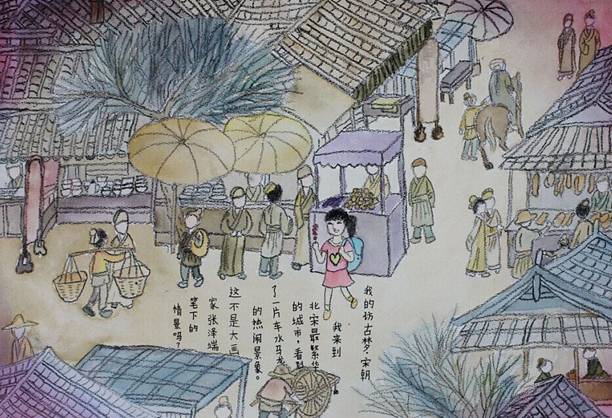 我的仿古梦·宋朝
我来到
北宋最繁华
的城市，看到
了一片车水马龙
的热闹景象。
这不是大画
家张泽端
笔下的
情景吗？